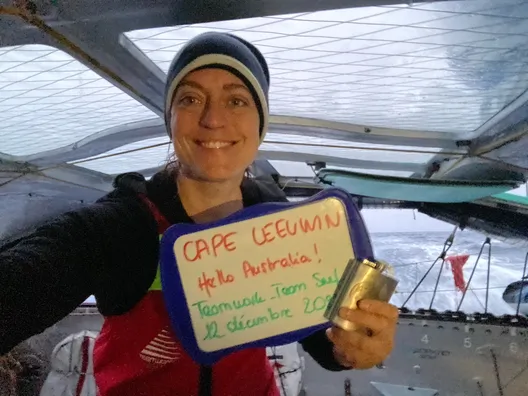 CAPE LEEUWIN
Hello Australia!
Teamwork - Team Snef
12 décembre